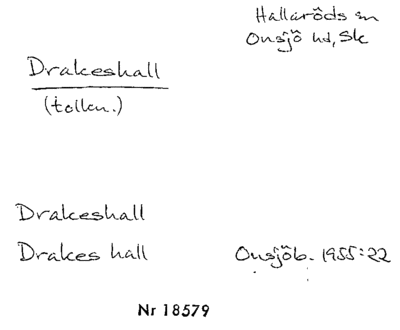 Hallaröds sn
Onsjö hd, Sk
Drakeshall
(tolkn.)
Drakeshall
Drakes hall Onsjöb. 1955:22
Nr 18579